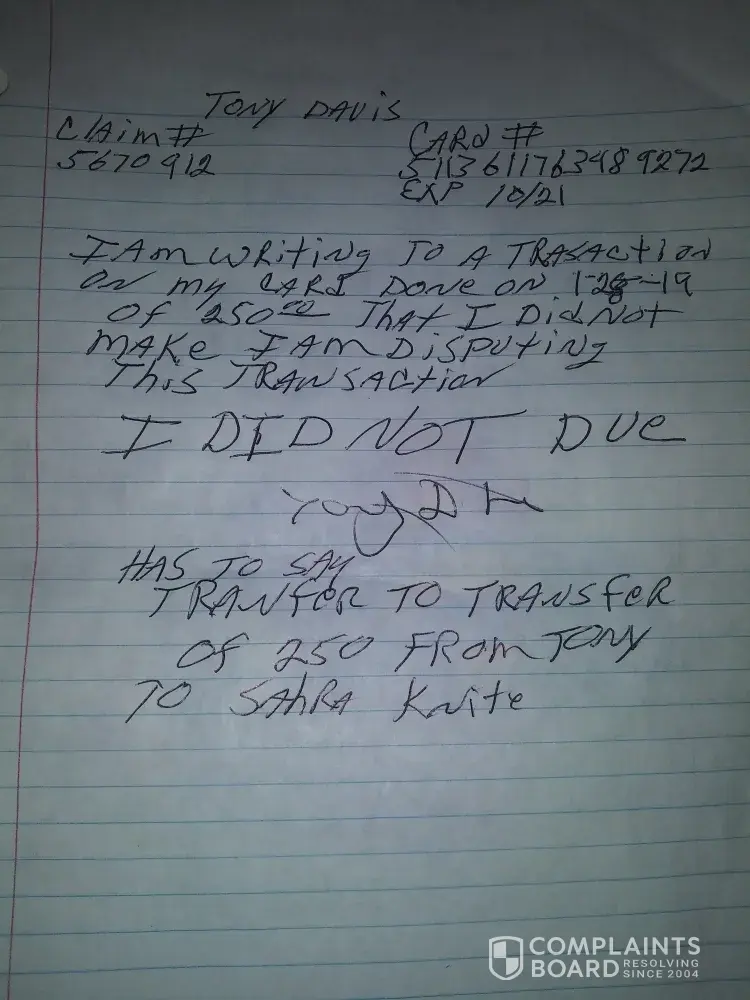 TONY DAVIS
Claim #
5670912
CARd #
5113611763489272
EXP 10/21
I Am WRiting TO A TRASACtiON
ON my CARd DONE ON 1-28-19
Of 250.00 That I Did Not
MAKE I AM DISPUTING
This TRANSACtion
I DID NOT DUE
HAS TO SAY
TRANfER TO TRANSfER
Of 250 FROm TONY
TO SAhRA Knite
COMPLAINTS
BOARD RESOLVING SINCE 2004